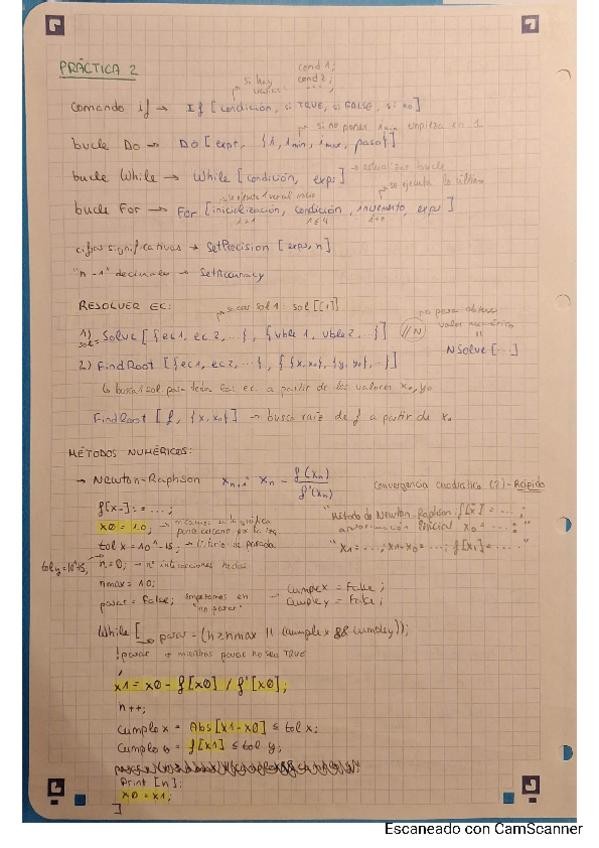 PRÁCTICA 2
cond 1;
cond 2;
si hay varias
Comando if → If [condición, si TRUE, si FALSE, si no]
si no pones i min empieza en 1
bucle Do → Do [expr, {i, i min, i max, paso}]
bucle While → While [condición, expr] → actualizar bucle
se ejecuta 1 vez al inicio
se ejecuta lo último
bucle For → For [inicialización, condición, incremento, expr]
i=1 i≤4 i++
cifras significativas → SetPrecision [expr, n]
"n-1" decimales → SetAccuracy
RESOLVER EC:
sacar sol 1: sol[[1]]
para obtener valor numérico
1) sol = Solve [{ec1, ec2, ...}, {vble 1, vble 2, ...}] //N
NSolve [...]
2) FindRoot [{ec1, ec2, ...}, {{x, x0}, {y, y0}, ...}]
↳ busca 1 sol para todas las ec. a partir de los valores x0, y0
FindRoot [f, {x, x0}] → busca raíz de f a partir de x0
MÉTODOS NUMÉRICOS:
→ Newton-Raphson xn+1 = xn - f(xn)/f'(xn) Convergencia cuadrática (2) - Rápido
f[x_] := ...;
"Método de Newton-Raphson: f[x] = ...;
x0 = 1.0; → miramos en la gráfica
aproximación inicial x0 = ...;"
tol x = 10^-15; → criterio de parada
"x1 = ...; x1-x0 = ...; f[x1] = ...."
tol y = 10^-15;
n = 0; → nº interacciones hechas
nmax = 10;
parar = False; empezamos en "no parar"
cumplex = False;
cumpley = False;
While [ parar = (n≥nmax || (cumplex && cumpley));
!parar → mientras parar no sea TRUE
x1 = x0 - f[x0] / f'[x0];
n++;
cumple x = Abs[x1-x0] ≤ tol x;
cumple y = f[x1] ≤ tol y;
Print [n];
x0 = x1;
]
Escaneado con CamScanner